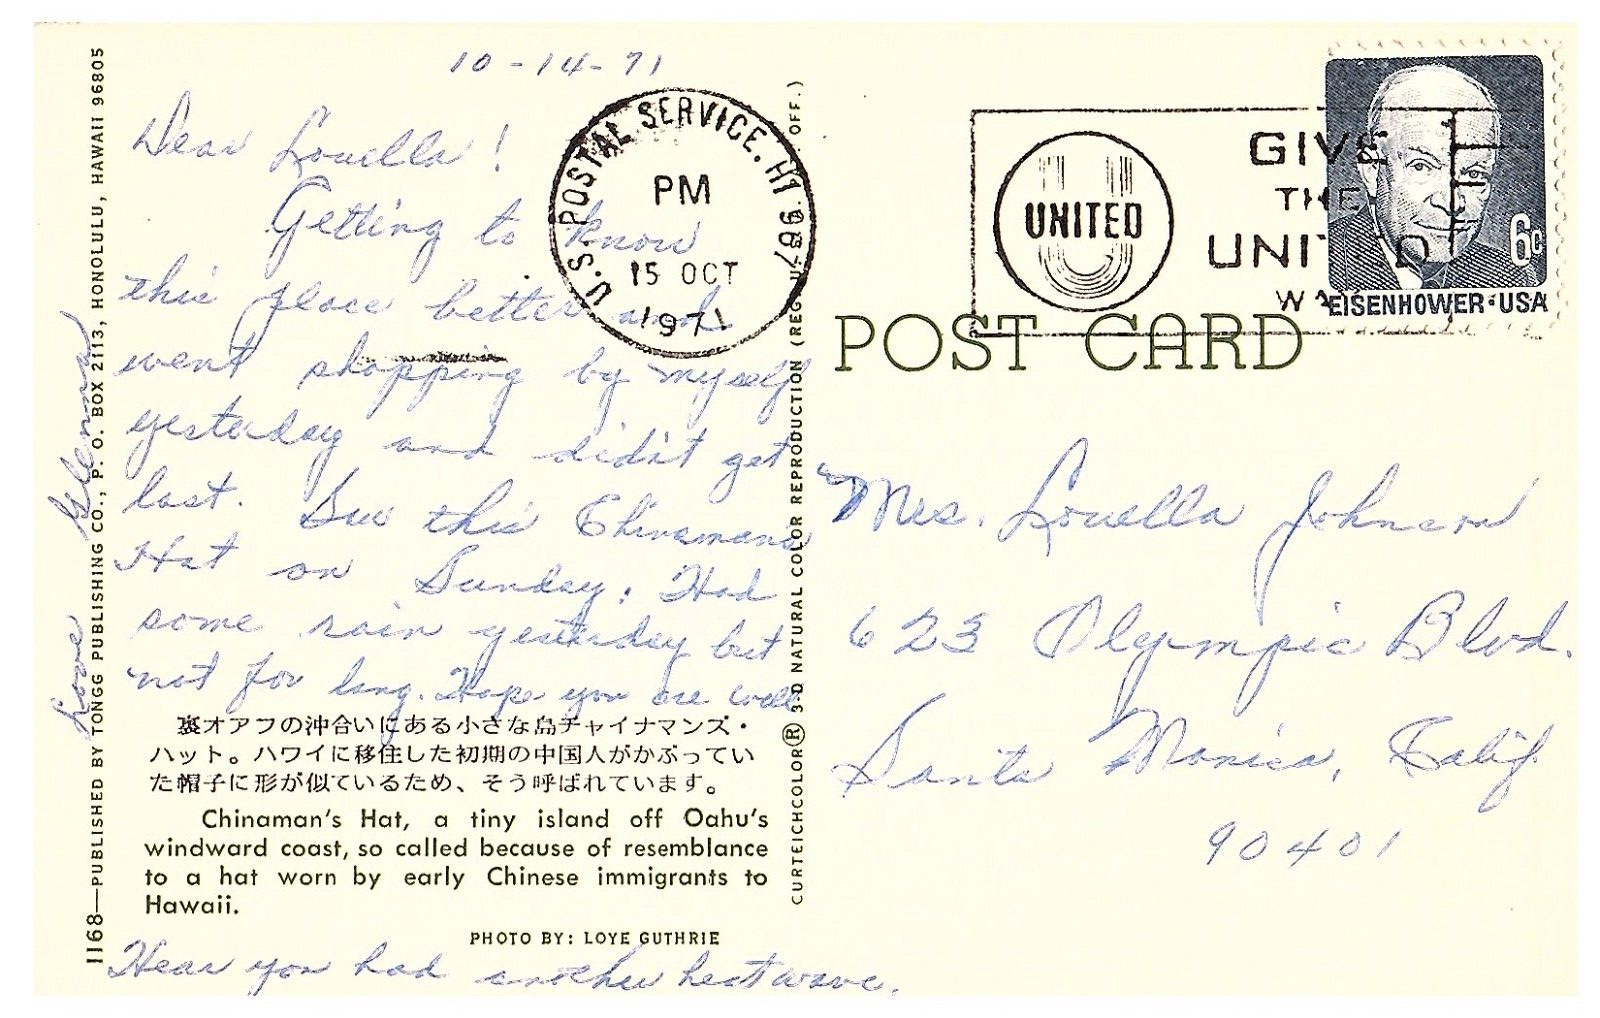 10-14-71
Dear Louella!
Getting to know
this place better and
went shopping by myself
yesterday and didn't get
lost. Saw this Chinamans
Hat on Sunday. Had
some rain yesterday but
not for long. Hope you are well
裏オアフの沖合いにある小さな島チャイナマンズ・
ハット。ハワイに移住した初期の中国人がかぶってい
た帽子に形が似ているため、そう呼ばれています。
Chinaman's Hat, a tiny island off Oahu's
windward coast, so called because of resemblance
to a hat worn by early Chinese immigrants to
Hawaii.
PHOTO BY: LOYE GUTHRIE
Hear you had another heat wave.
Love Glenna
1168—PUBLISHED BY TONGG PUBLISHING CO., P. O. BOX 2113, HONOLULU, HAWAII 96805
CURTEICHCOLOR® 3-D NATURAL COLOR REPRODUCTION (REG. U.S. OFF.)
U.S. POSTAL SERVICE, HI 967
PM
15 OCT
1971
UNITED
GIVE
THE
UNITED
WA
6c
EISENHOWER·USA
POST CARD
Mrs. Louella Johnson
623 Olympic Blvd.
Santa Monica, Calif.
90401